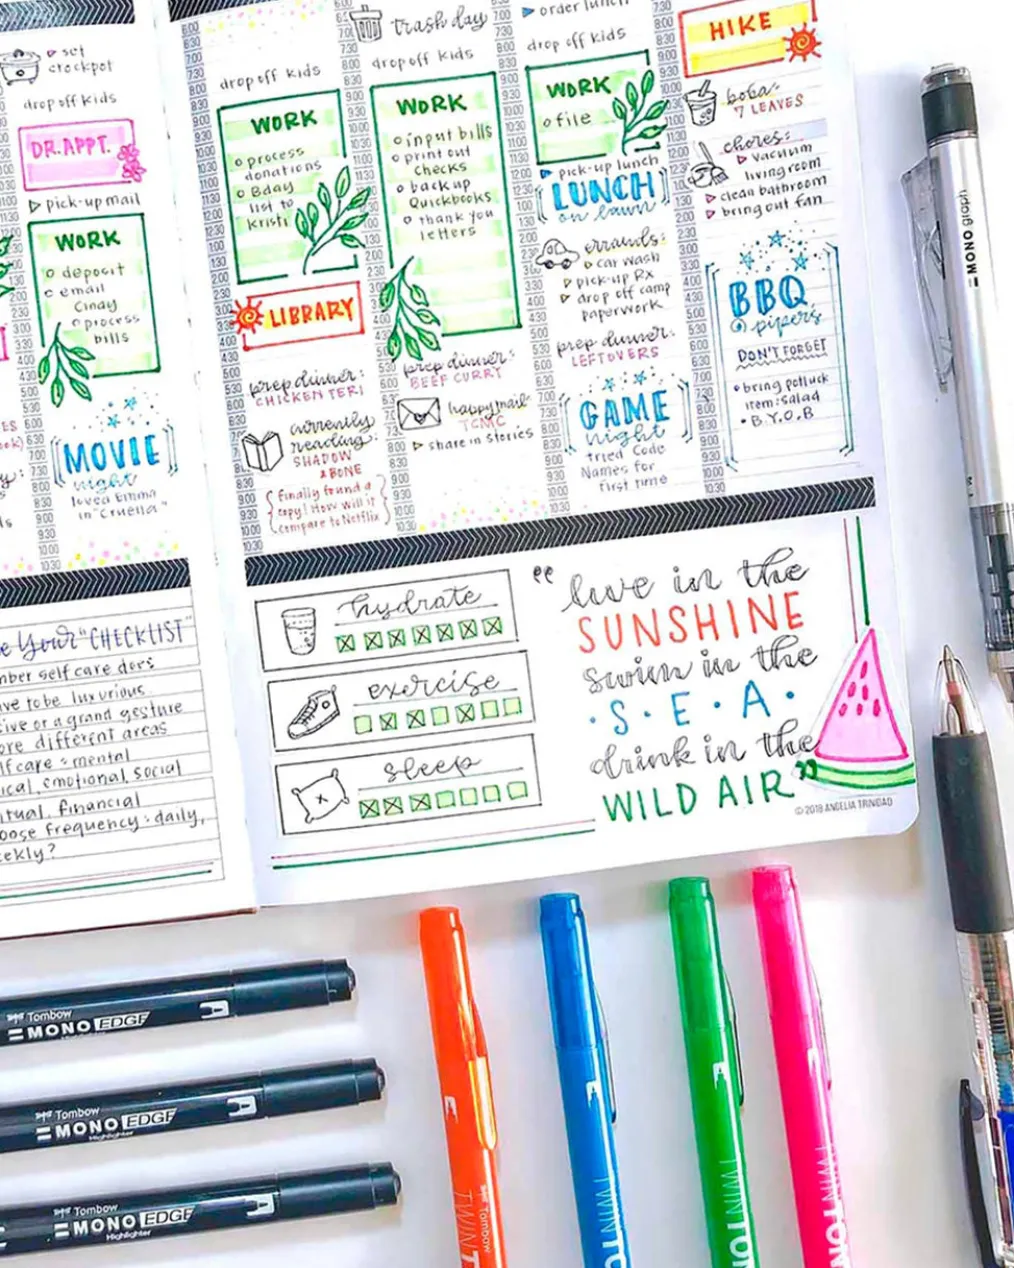 set
crockpot
drop off kids
DR. APPT.
pick-up mail
WORK
deposit
email
Cindy
process
bills
MOVIE
night
loved Emma
in "Cruella"
drop off kids
WORK
process
donations
Bday
list to
Kristi
LIBRARY
prep dinner:
CHICKEN TERI
currently
reading:
SHADOW
& BONE
finally found a
copy! How will it
compare to Netflix
trash day
drop off kids
WORK
input bills
print out
checks
backup
Quickbooks
thank you
letters
prep dinner:
BEEF CURRY
happy mail:
TCMC
share in stories
order lunch
drop off kids
WORK
file
pick-up lunch
LUNCH
on lawn
errands:
car wash
pick-up Rx
drop off camp
paperwork
prep dinner:
LEFTOVERS
GAME
night
tried Code
Names for
first time
HIKE
boba:
7 LEAVES
chores:
vacuum
living room
clean bathroom
bring out fan
BBQ
@ pipers
DON'T FORGET
bring potluck
item: salad
B.Y.O.B
Your "CHECKLIST"
self care does
to be luxurious
or a grand gesture
different areas
care = mental
emotional, social
financial
frequency: daily,
hydrate
exercise
sleep
"live in the
SUNSHINE
swim in the
·S·E·A·
drink in the
WILD AIR"
© 2018 ANGELIA TRINIDAD
Tombow
MONO EDGE
Tombow
MONO EDGE
Highlighter
Tombow
MONO EDGE
Highlighter
Tombow
MONO graph